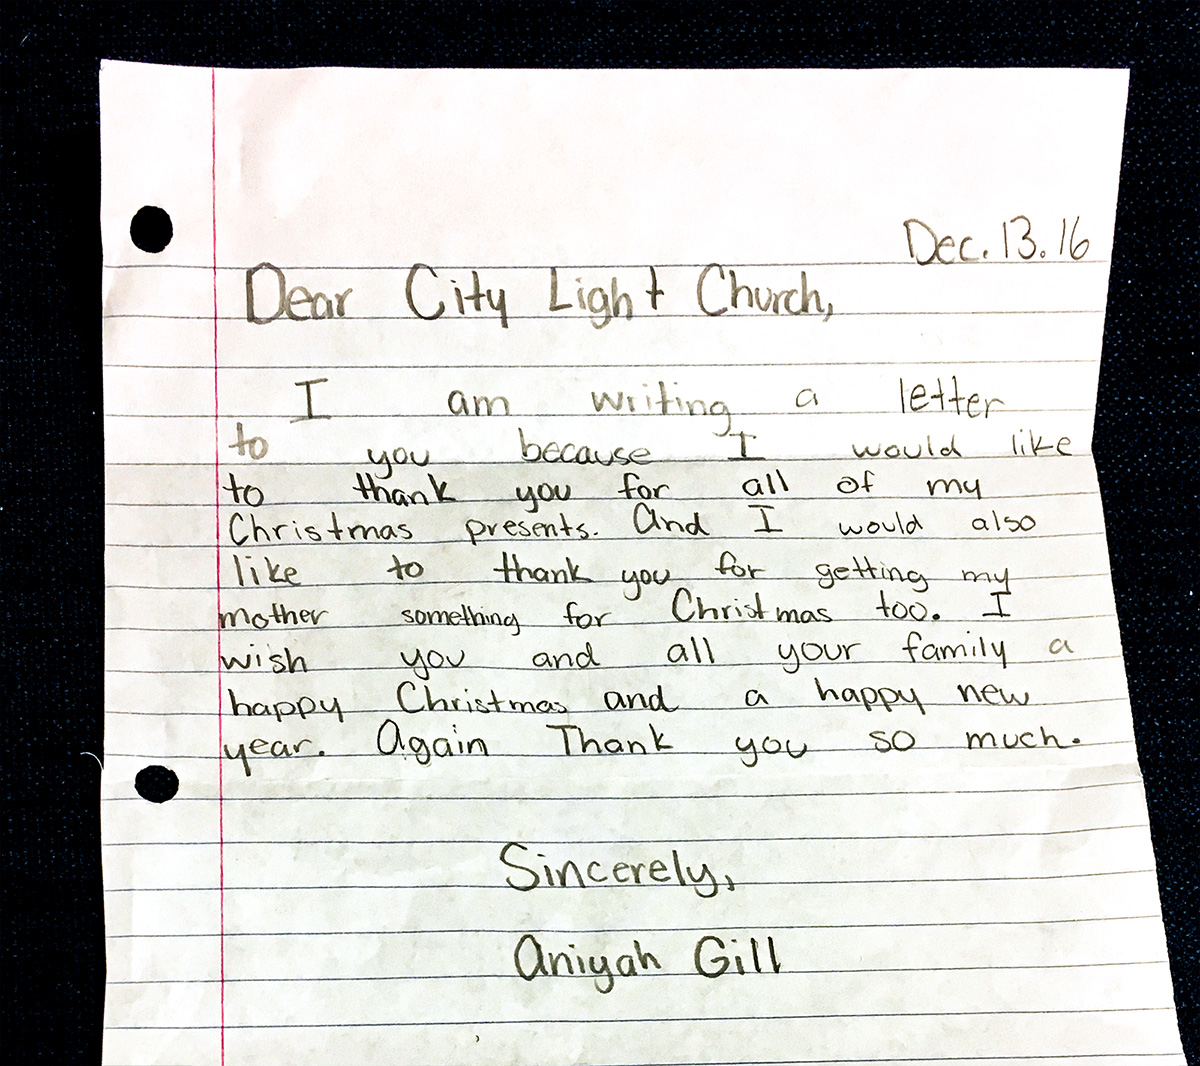 Dec. 13. 16
Dear City Light Church,
I am writing a letter
to you because I would like
to thank you for all of my
Christmas presents. And I would also
like to thank you for getting my
mother something for Christmas too. I
wish you and all your family a
happy Christmas and a happy new
year. Again Thank you so much.
Sincerely,
Aniyah Gill